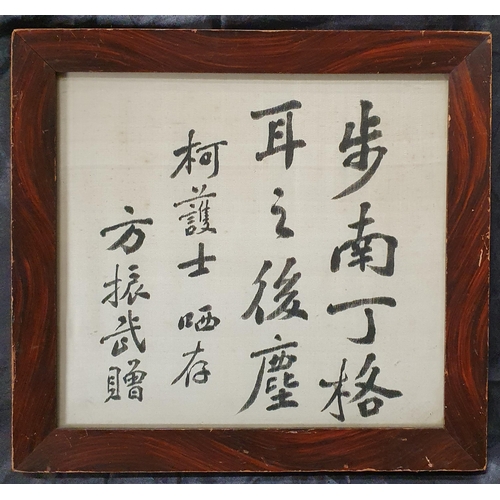 步南丁格
耳之後塵
柯護士哂存
方振武贈